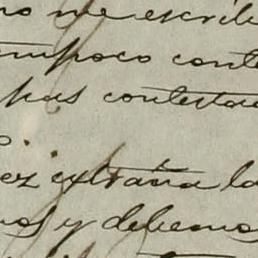 no me escrib
ampoco conte
has contestad
ez extraña la
nos y debemos